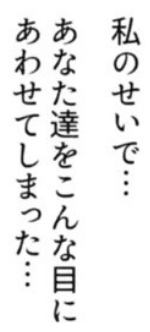 私のせいで…
あなた達をこんな目に
あわせてしまった…